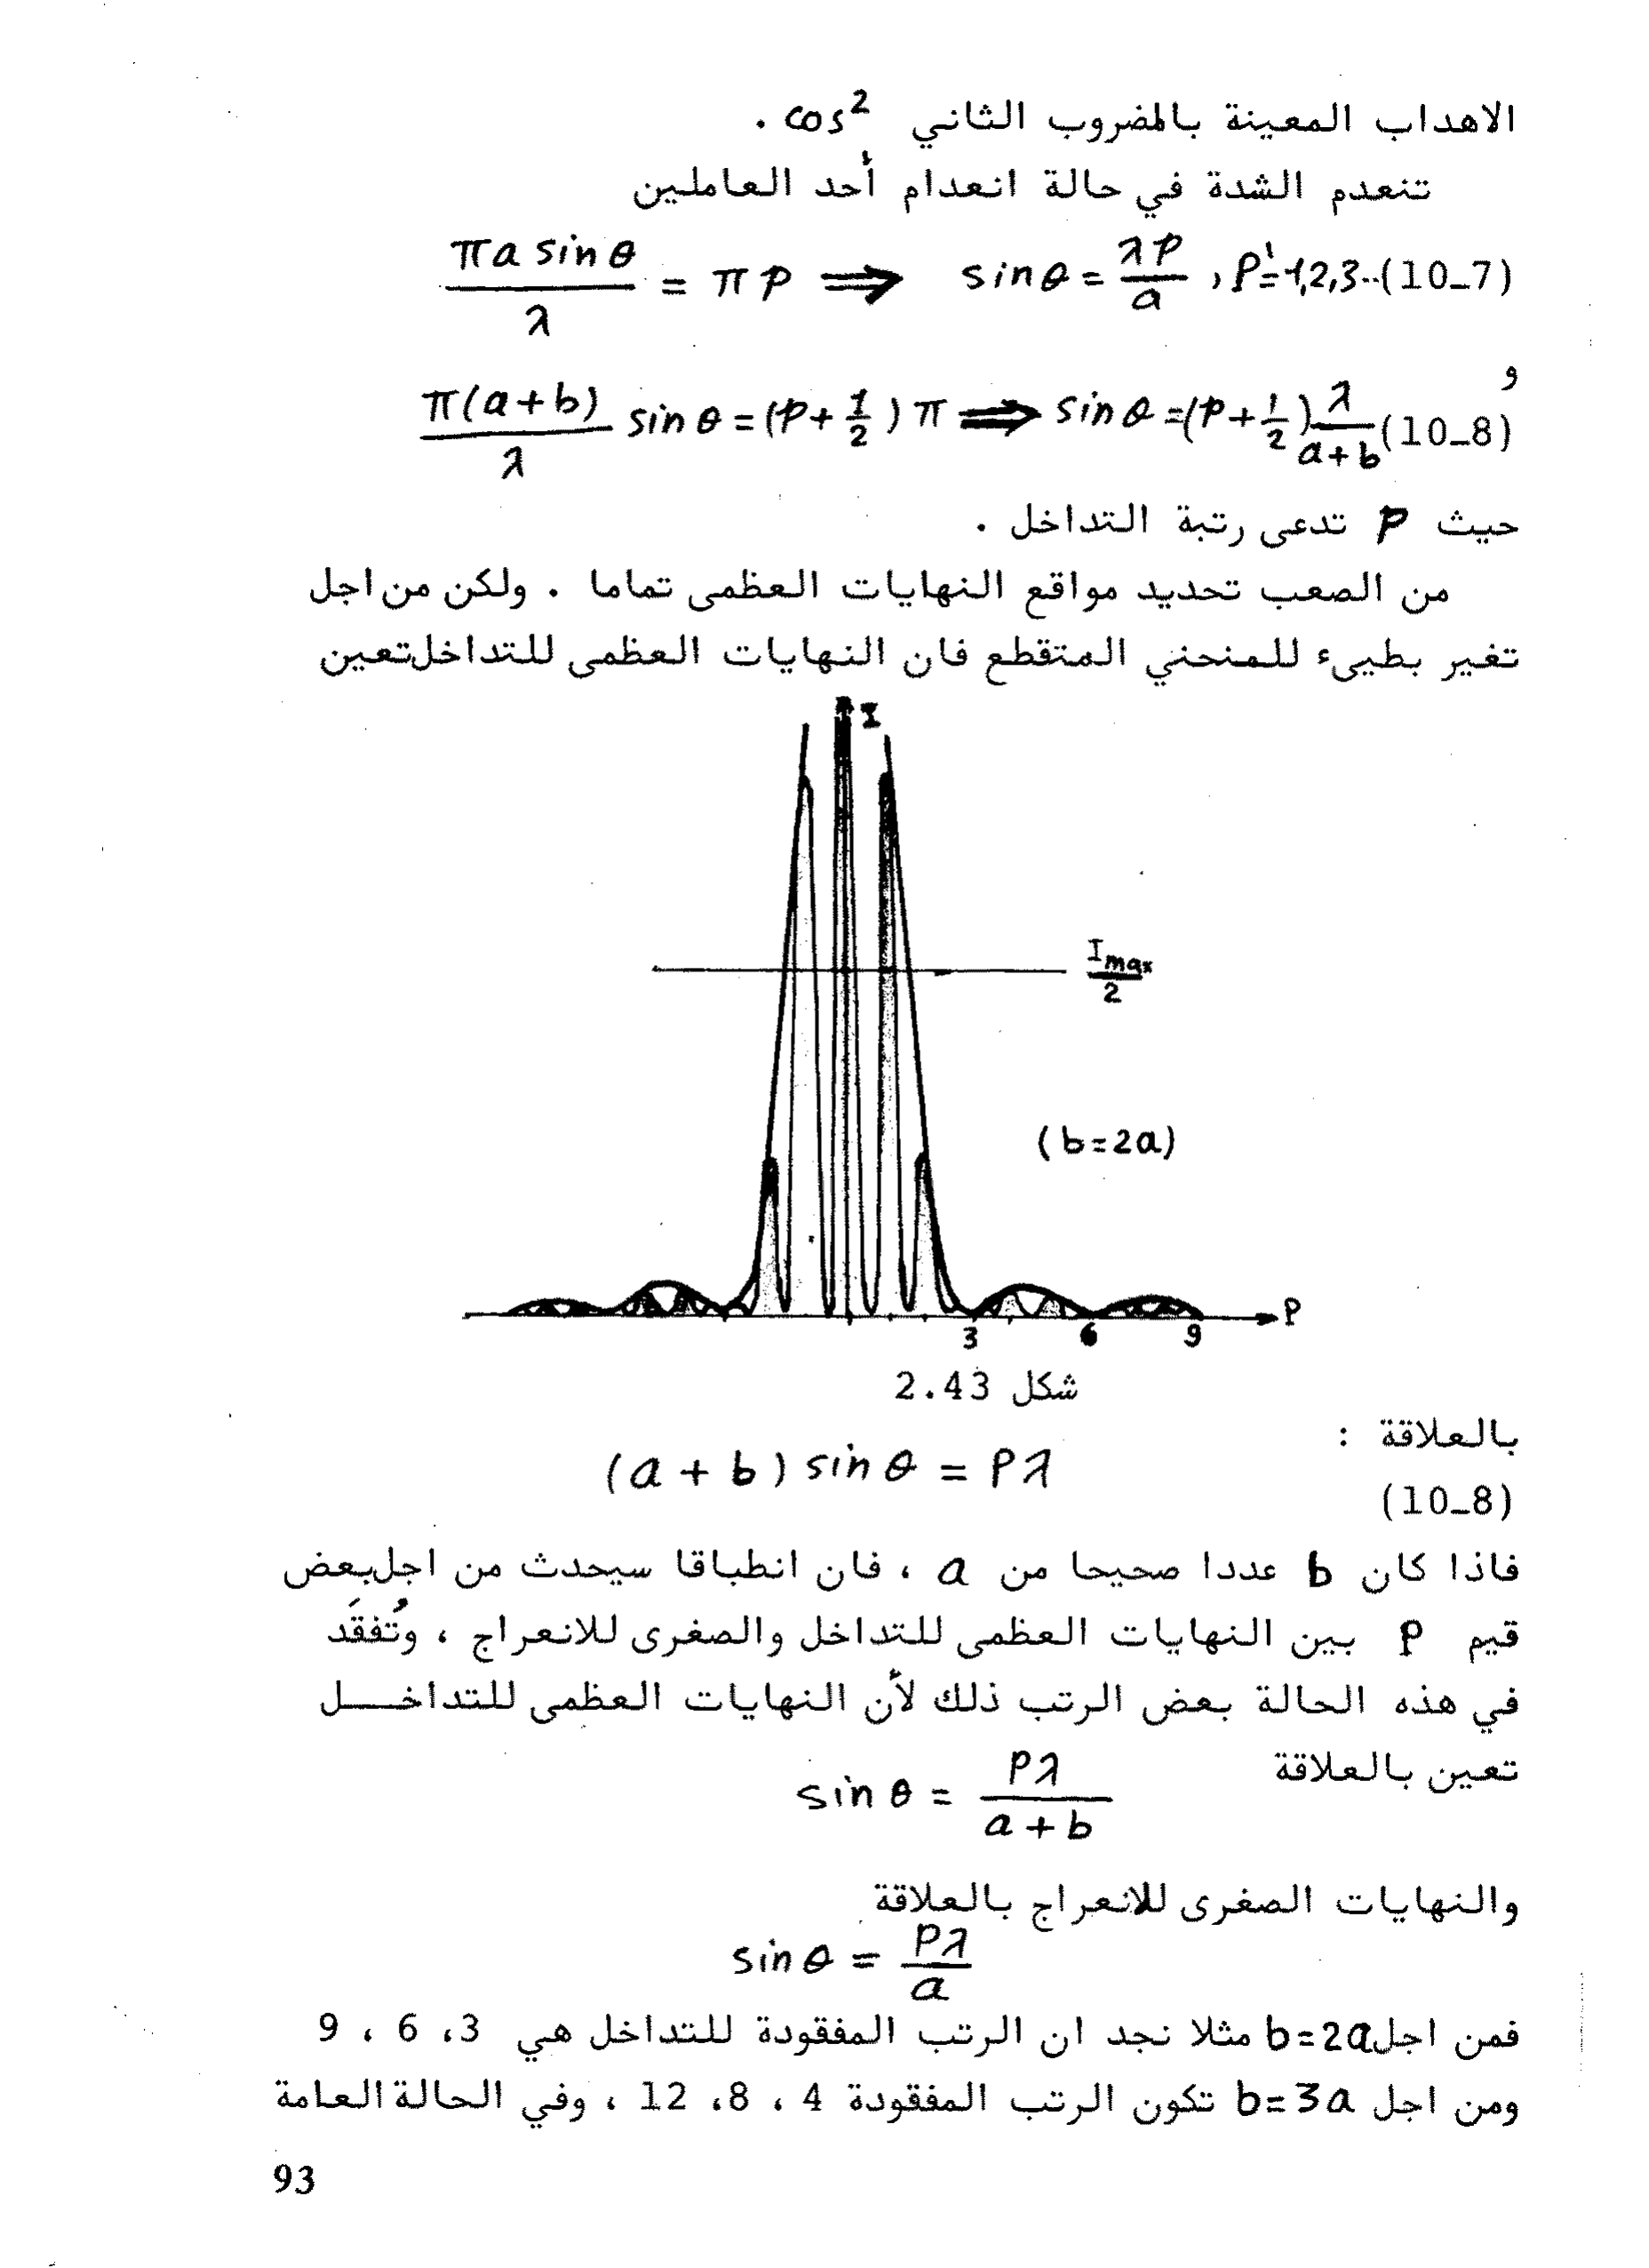 الاهداب المعينة بالمضروب الثاني cos² .
تنعدم الشدة في حالة انعدام أحد العاملين
πa sinθ / λ = πp ⟹ sinθ = λp / a , p'=1,2,3--(10_7)
و
π(a+b) / λ sinθ = (p + 1/2) π ⟹ sinθ = (p + 1/2) λ / a+b (10_8)
حيث p تدعى رتبة التداخل .
من الصعب تحديد مواقع النهايات العظمى تماما . ولكن من اجل
تغير بطيىء للمنحني المتقطع فان النهايات العظمى للتداخل تعين
I
I max / 2
(b=2a)
P
3 6 9
شكل 2.43
بالعلاقة :
(a + b) sinθ = Pλ
(10_8)
فاذا كان b عددا صحيحا من a ، فان انطباقا سيحدث من اجل بعض
قيم P بين النهايات العظمى للتداخل والصغرى للانعراج ، وتُفقَد
في هذه الحالة بعض الرتب ذلك لأن النهايات العظمى للتداخـــل
تعين بالعلاقة sinθ = Pλ / a + b
والنهايات الصغرى للانعراج بالعلاقة
sinθ = Pλ / a
فمن اجل b=2a مثلا نجد ان الرتب المفقودة للتداخل هي 3، 6 ، 9
ومن اجل b=3a تكون الرتب المفقودة 4 ، 8، 12 ، وفي الحالة العامة
93